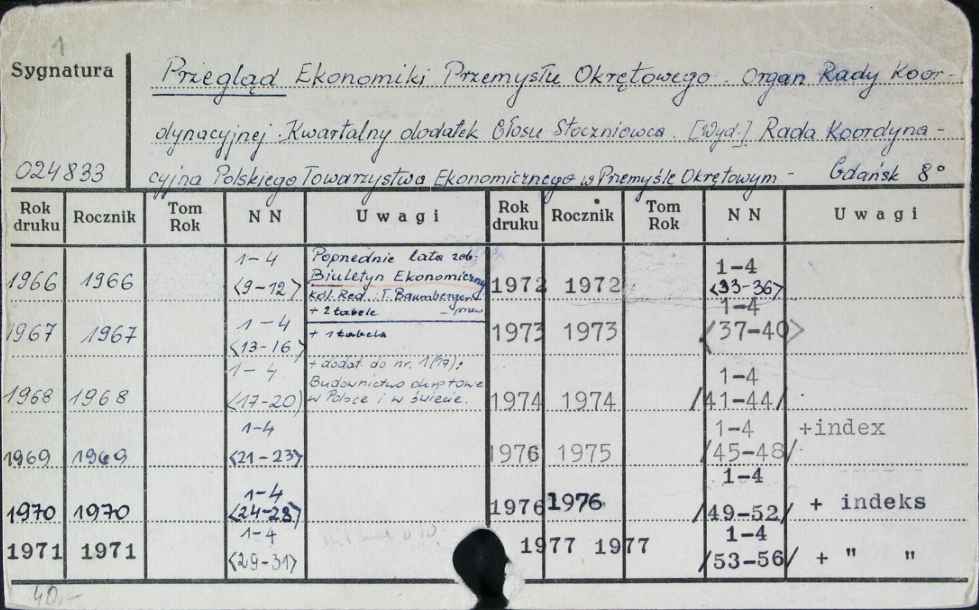 1
Sygnatura
Przegląd Ekonomiki Przemysłu Okrętowego. Organ Rady Koor-
dynacyjnej. Kwartalny dodatek Głosu Stoczniowca. [Wyd.] Rada Koordyna-
024833
cyjna Polskiego Towarzystwa Ekonomicznego w Przemyśle Okrętowym - Gdańsk 8°
Rok druku Rocznik Tom Rok NN Uwagi Rok druku Rocznik Tom Rok NN Uwagi
1966 1966 1-4 <9-12> Poprzednie lata zob:
Biuletyn Ekonomiczny
Kol. Red. T. Baumberger
+ 2 tabele
1967 1967 1-4 <13-16> + 1 tabela
1968 1968 1-4 <17-20> + dodat do nr. 1(17):
Budownictwo okrętowe
w Polsce i w świecie.
1969 1969 1-4 <21-23>
1970 1970 1-4 <24-28>
1971 1971 1-4 <29-31>
1972 1972 1-4 <33-36>
1973 1973 1-4 /37-40>
1974 1974 1-4 /41-44/
1976 1975 1-4 /45-48/ +index
1976 1976 1-4 /49-52/ + indeks
1977 1977 1-4 /53-56/ + " "
40,-